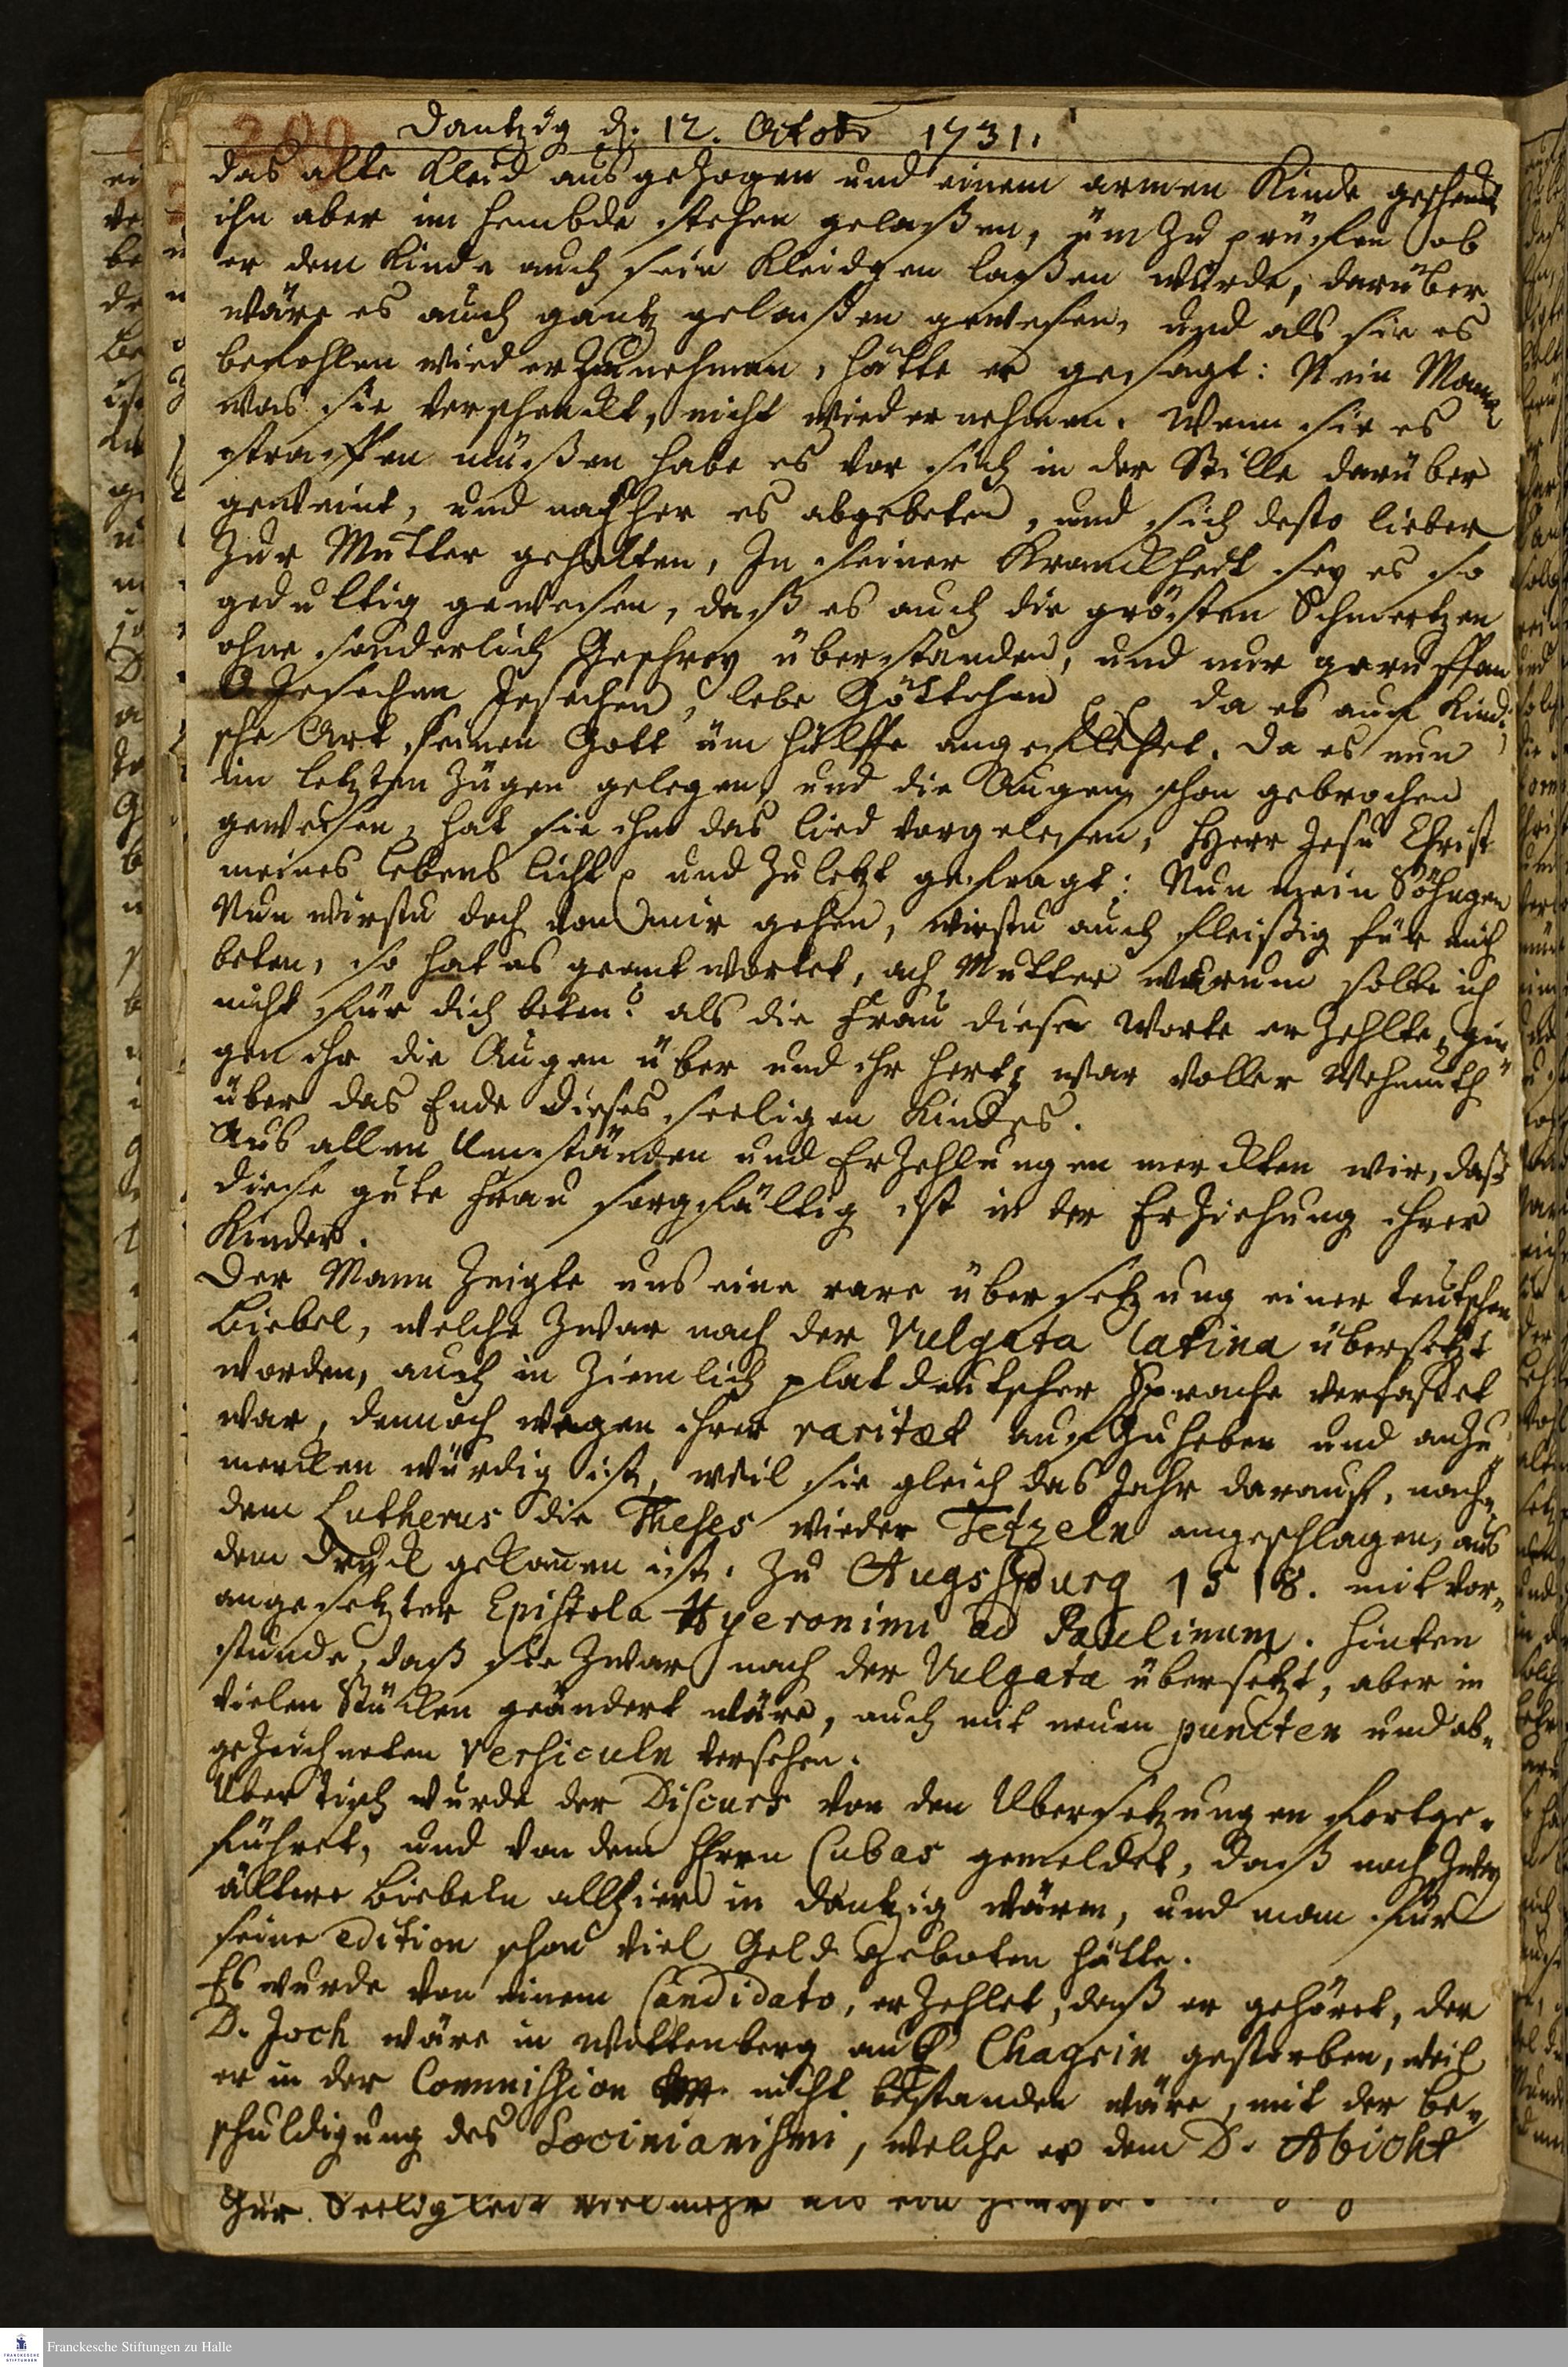 289
Dantzig d. 12. Octobr 1731.
das alte Kleid ausgezogen und einem armen Kinde geschenckt
ihn aber im Hembde stehen gelaßen, üm zu prüfen ob
er dem Kinde auch sein Kleidgen laßen würde, darüber
wäre es auch gantz gelaßen gewesen, und als sie es
befohlen wiederzunehmen, hätte er gesagt: Nein Mama
was sie verschenckt, nicht wiedernehmen. Wenn sie es
straffen müßen habe es vor sich in der Stille darüber
geweint, und nachher es abgebeten, und sich desto lieber
zur Mutter gehalten, In seiner Kranckheit sey es so
gedultig gewesen, daß es auch die grösten Schmertzen
ohne sonderlich Geschrey überstanden, und nur geruffen
O Jesechen Jesechen, lebe Göttchen da es auf Kindi-
sche Art seinen Gott üm hülffe angeflehet. Da es nun
im letzten Zügen gelegen, und die Augen schon gebrochen
gewesen, hat sie ihm das lied vorgelesen, Herr Jesu Christ
meines Lebens licht und zuletzt gefragt: Nun mein Söhngen
Nun wirstu doch von mir gehen, wirstu auch fleißig für mich
beten, so hat es geantwortet, ach Mutter warum solte ich
nicht für dich beten? als die Frau diese Worte erzehlte, gin-
gen ihr die Augen über und ihr Hertz war voller Wehmuth
über das Ende dieses seeligen Kindes.
Aus allen Umständen und Erzehlungen merckten wir, daß
diese gute Frau sorgfältig ist in der Erziehung ihrer
Kinder.
Der Mann zeigte uns eine rare übersetzung einer teutschen
Biebel, welche zwar nach der Vulgata latina übersetzt
worden, auch in ziemlich platdeutscher Sprache verfasset
war, dennoch wegen ihrer raritæt aufzuheben und anzu-
mercken würdig ist, weil sie gleich das Jahr darauf, nach-
dem Lutherus die Theses wieder Tetzeln angeschlagen, aus
dem Druck gekom̄en ist. Zu Augsspurg 1518. mit vor-
angesetzter Epistola Hyeronimi ad Paulinum. Hinten
stunde, daß sie zwar nach der Vulgata übersetzt, aber in
vielen Stücken geändert wäre, auch mit neuen puncten und ab-
gezeichneten Versiculn versehen.
Uber tisch wurde der Discurs von den Ubersetzungen fortge-
führet, und von dem Herrn Cubas gemeldet, daß noch zwey
ältere Biebeln allhier in Dantzig wären, und man für
seine edition schon viel Geld geboten hätte.
Es wurde von einem Candidato, erzehlet, daß er gehöret, der
D. Joch wäre in Wittenberg auß Chagrin gestorben, weil
er in der Commission nicht bestanden wäre, mit der be-
schuldigung des Socinianismi, welche er dem D. Abicht
Zur Seeligkeit vielmehr als von
Franckesche Stiftungen zu Halle